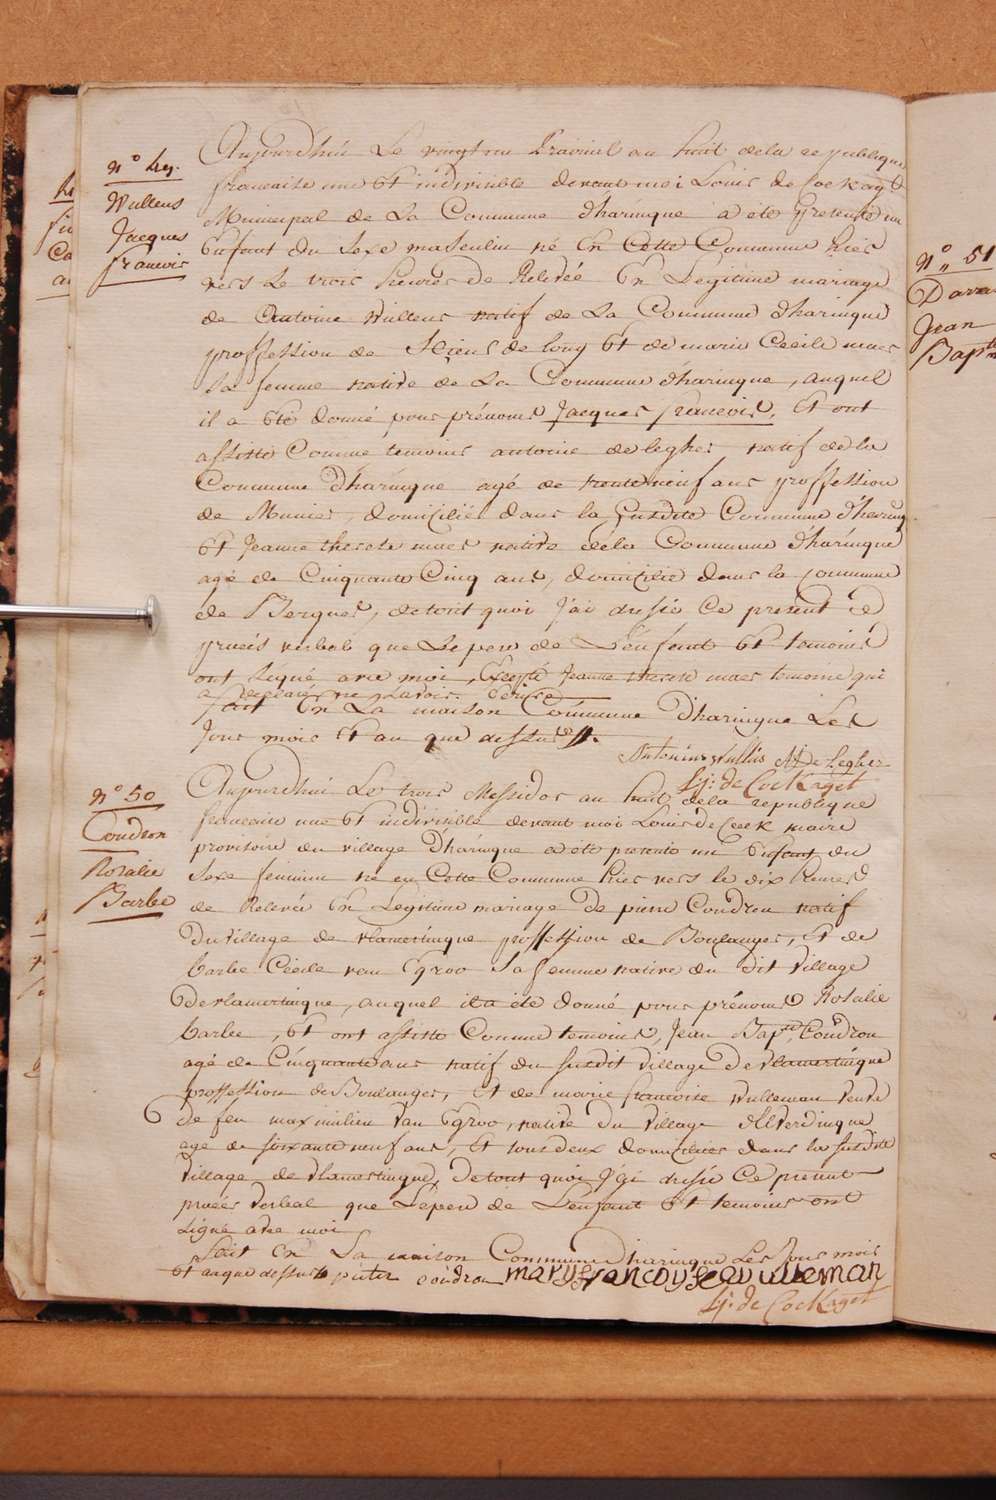 n° 49.
Wullens
Jacques
francois
Aujourdhui Le vingt un Prairiel an huit de la republique
francaise une Et indivisible devant moi Louis de Cockagt
Municipal de La Commune d'haringue a été presenté un
Enfant du Sexe masculin né En Cette Commune hier
vers Le trois heures de Relevée En Legitime mariage
de Antoine Wullens natif de La Commune d'haringue
proffession de Scieur de long Et de marie Cecile maes
Sa femme native de La Commune d'haringue, auquel
il a été donné pour prénoms Jacques francois, Et ont
assisté Comme temoins antoine de leghes natif de la
Commune d'haringue agé de trente neuf ans proffession
de Munier, domicilié dans la Susdite Commune d'haring
Et Jeanne therese maes native de la Commune d'haringue
agé de Cinquante Cinq ans, domicilié dans la Commune
de Bergues, de tout quoi J'ai dressé Ce present
procés verbal que Le pere de L'énfant Et temoins
ont Signé avec moi, Excepté Jeanne therese maes temoine qui
a declaré ne Savoir Ecrire
fait En La maison Commune D'haringue Les
Jour mois Et an que dessus
Antonius wullus A De Legher
Lj: de CocKaget
n° 50
Coudron
Rosalie
Barbe
Aujourdhui Le trois Messidor an huit de la republique
francaise une Et indivisible devant moi Louis de Cock maire
provisoire du village D'haringue a été presenté un Enfant du
Sexe feminin né en Cette Commune hier vers le dix heures
de Relevée En Legitime mariage De pierre Coudron natif
Du village de vlamertinque proffession de Boulanger, Et de
barbe Cécile van Egroo Sa femme native du dit village
De vlamertinque, auquel il a été donné pour prénoms Rosalie
barbe, Et ont assisté Comme temoins, Jean Bap.te Coudron
agé de Cinquante ans natif du Susdit village De vlamertinque
proffession de Boulanger, Et de marie francoise Wulleman veuve
De feu maximilien van Egroo, native du village d'Elverdinque
agé de soixante neuf ans, Et tous deux domiciliés dans la susdite
village de vlamertinque De tout quoi J'ai dressé Ce present
procés verbal que Le pere de L'enfant Et temoins ont
Signé avec moi
fait En La maison Commune D'haringue Les Jour mois
Et an que dessus pieter coudron maryfrancoyse wulleman
Lj: de CocKaget
N° 51
Jean
Bapte